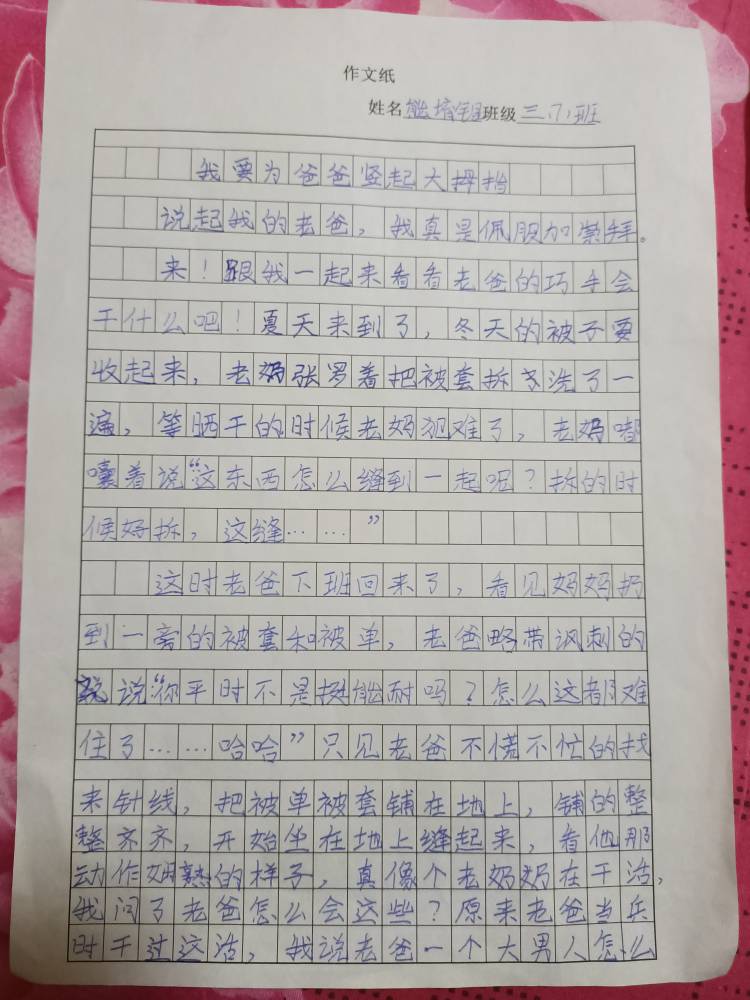 作文纸
姓名 能培 班级 三、(7)班
我要为爸爸竖起大拇指
说起我的老爸，我真是佩服加崇拜。
来！跟我一起来看看老爸的巧手会
干什么吧！夏天来到了，冬天的被子要
收起来，老妈张罗着把被套拆了洗了一
遍，等晒干的时候老妈犯难了，老妈嘟
囔着说“这东西怎么缝到一起呢？拆的时
候好拆，这缝……”
这时老爸下班回来了，看见妈妈扔
到一旁的被套和被单，老爸略带讽刺的
说“你平时不是挺能耐吗？怎么这都难
住了……哈哈”只见老爸不慌不忙的找
来针线，把被单被套铺在地上，铺的整
整齐齐，开始坐在地上缝起来，看他那
动作娴熟的样子，真像个老奶奶在干活，
我问了老爸怎么会这些？原来老爸当兵
时干过这活，我说老爸一个大男人怎么